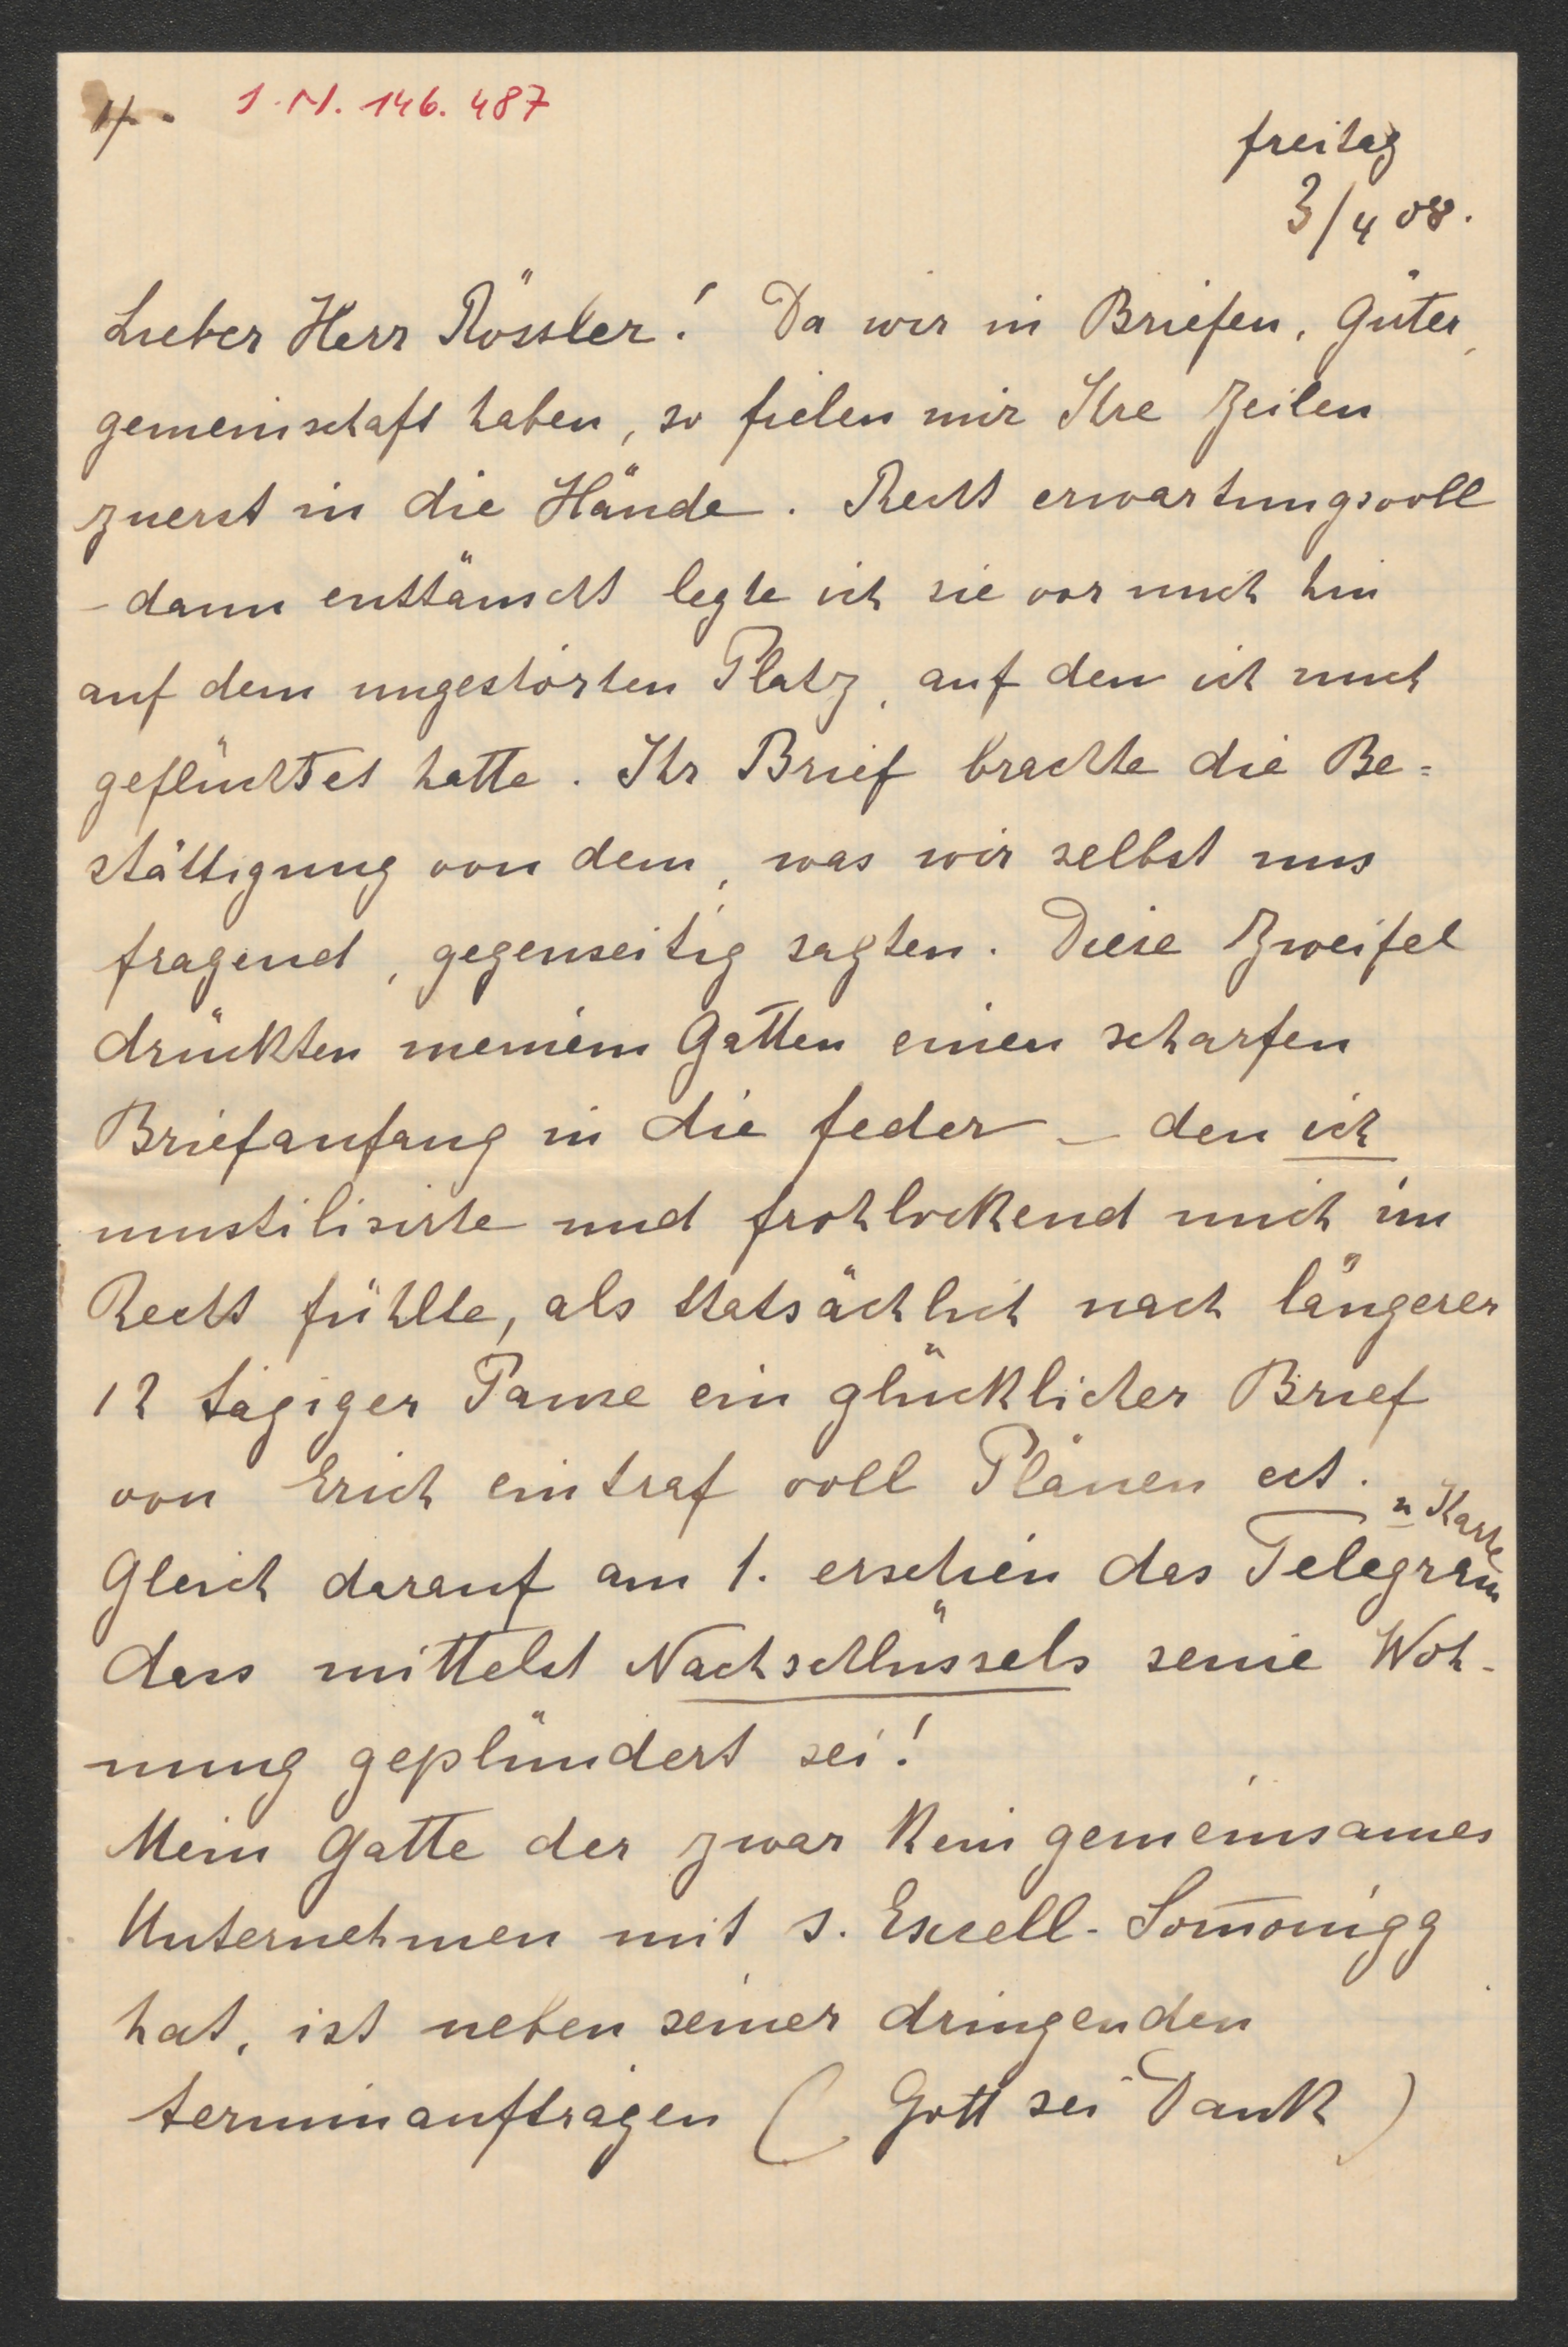 1/.
I.N. 146.487
freitag
3/4 08.
Lieber Herr Rössler! Da wir in Briefen, Güter,
gemeinschaft haben, so fielen mir Ihre Zeilen
zuerst in die Hände. Recht erwartungsvoll
– dann enttäuscht legte ich sie vor mich hin
auf dem ungestörten Platz, auf den ich mich
geflüchtet hatte. Ihr Brief brachte die Be=
stättigung von dem, was wir selbst uns
fragend, gegenseitig sagten. Diese Zweifel
drückten meinem Gatten einen scharfen
Briefanfang in die feder – den ich
umstilisirte und frohlockend mich im
Recht fühlte, als thatsächlich nach längerer
12 tägiger Pause ein glücklicher Brief
von Erich eintraf voll Plänen ect.
u Karte
Gleich darauf am 1. erschien das Telegram̅
dass mittelst Nachschlüssels seine Woh-
nung geplündert sei!
Mein Gatte der zwar kein gemeinsames
Unternehmen mit s. Excell. Som̅onigg
hat, ist neben seiner dringenden
terminaufträgen ( Gott sei Dank )